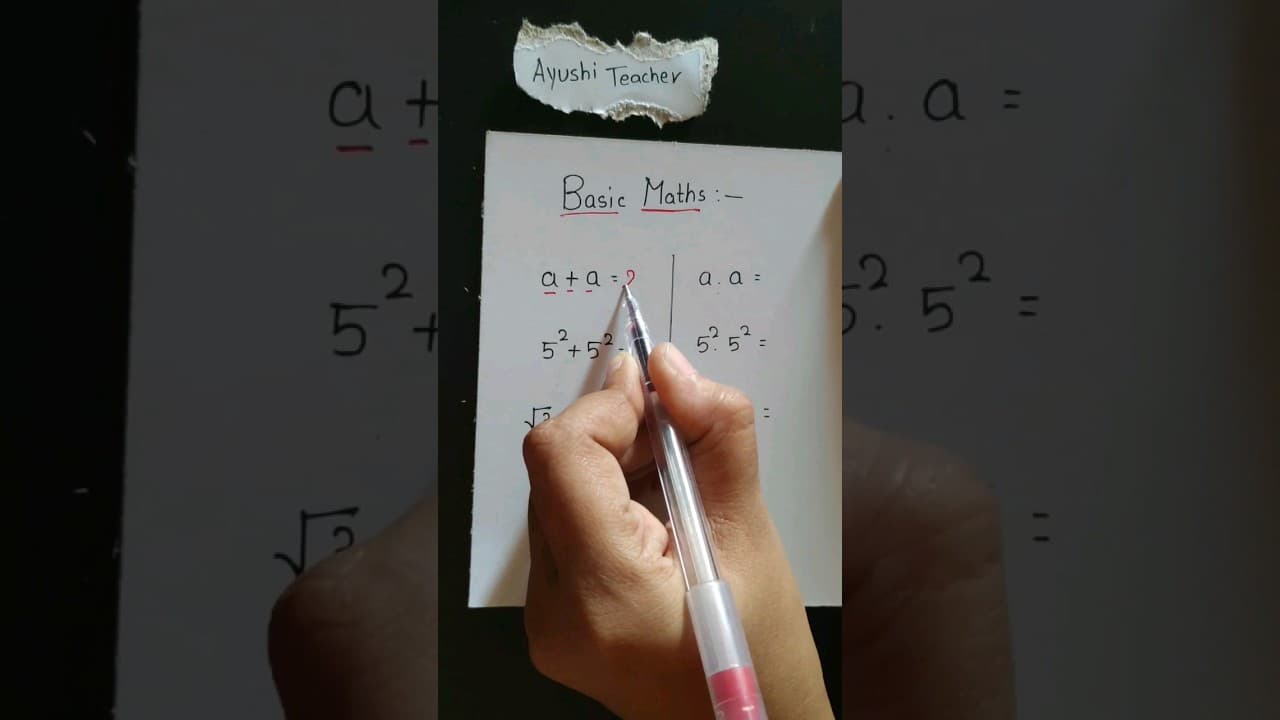 Ayushi Teacher
Basic Maths :-
a + a = 2
a . a =
5² + 5² =
5² . 5² =
√
=